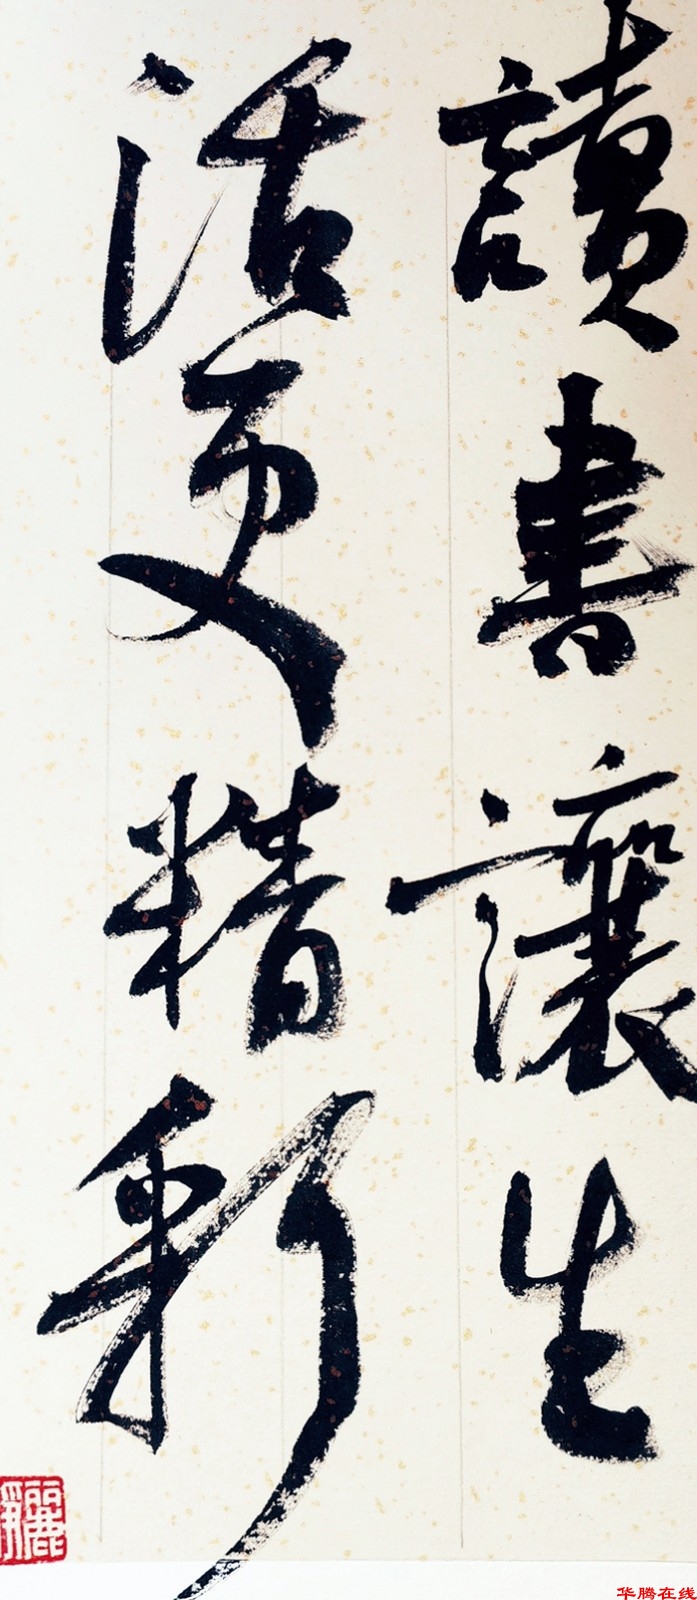 讀書讓生
活更精彩
华腾在线